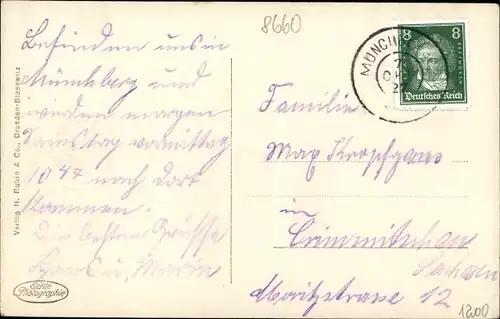 8660
Befinden uns in
Münchberg und
werden morgen
vormittag
10⁴⁷ nach dort
kommen.
Die besten Grüsse
Hans u.
Verlag H. Rubin & Co., Dresden-Blasewitz
Echte
Photographie
MÜNCH
8 8
BEETHOVEN
Deutsches Reich
Familie
Max
in
Crimmitschau
Sachsen
Moritzstrasse 12
1200